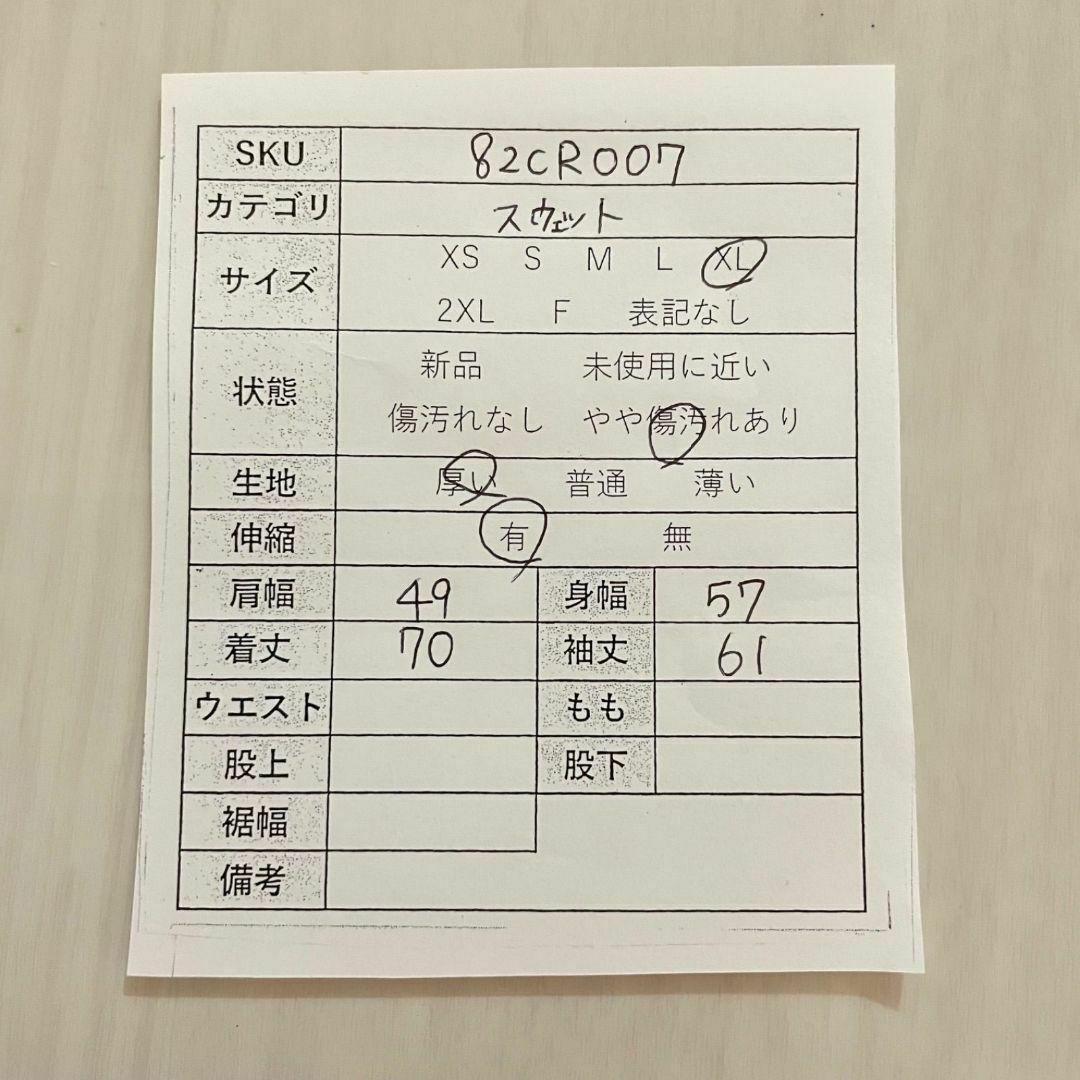 SKU 82CR007
カテゴリ スウェット
サイズ XS S M L XL
2XL F 表記なし
状態 新品 未使用に近い
傷汚れなし やや傷汚れあり
生地 厚い 普通 薄い
伸縮 有 無
肩幅 49 身幅 57
着丈 70 袖丈 61
ウエスト もも
股上 股下
裾幅
備考